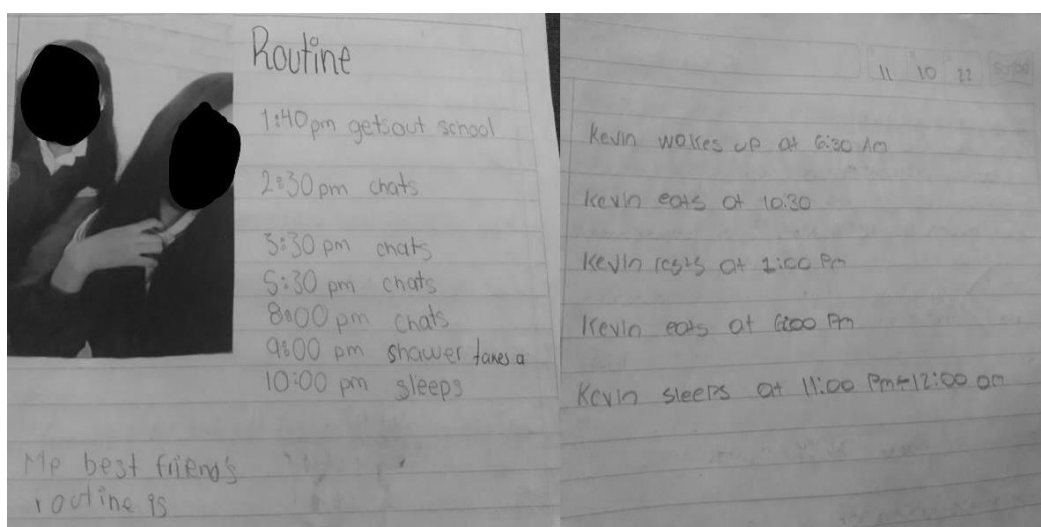 Routine
1:40 pm gets out school
2:30 pm chats
3:30 pm chats
5:30 pm chats
8:00 pm chats
9:00 pm shawer takes a
10:00 pm sleeps
My best friend's
routine is
11 10 22 Scribd
Kevin wakes up at 6:30 Am
Kevin eats at 10:30
Kevin rests at 1:00 Pm
Kevin eats at 6:00 Pm
Kevin sleeps at 11:00 Pm-12:00 am